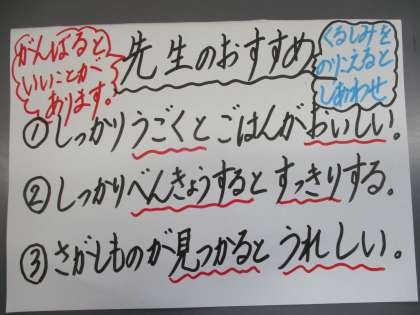 がんばると
いいことが
あります。
先生のおすすめ
くるしみを
のりこえると
しあわせ
①しっかりうごくとごはんがおいしい。
②しっかりべんきょうするとすっきりする。
③さがしものが見つかるとうれしい。